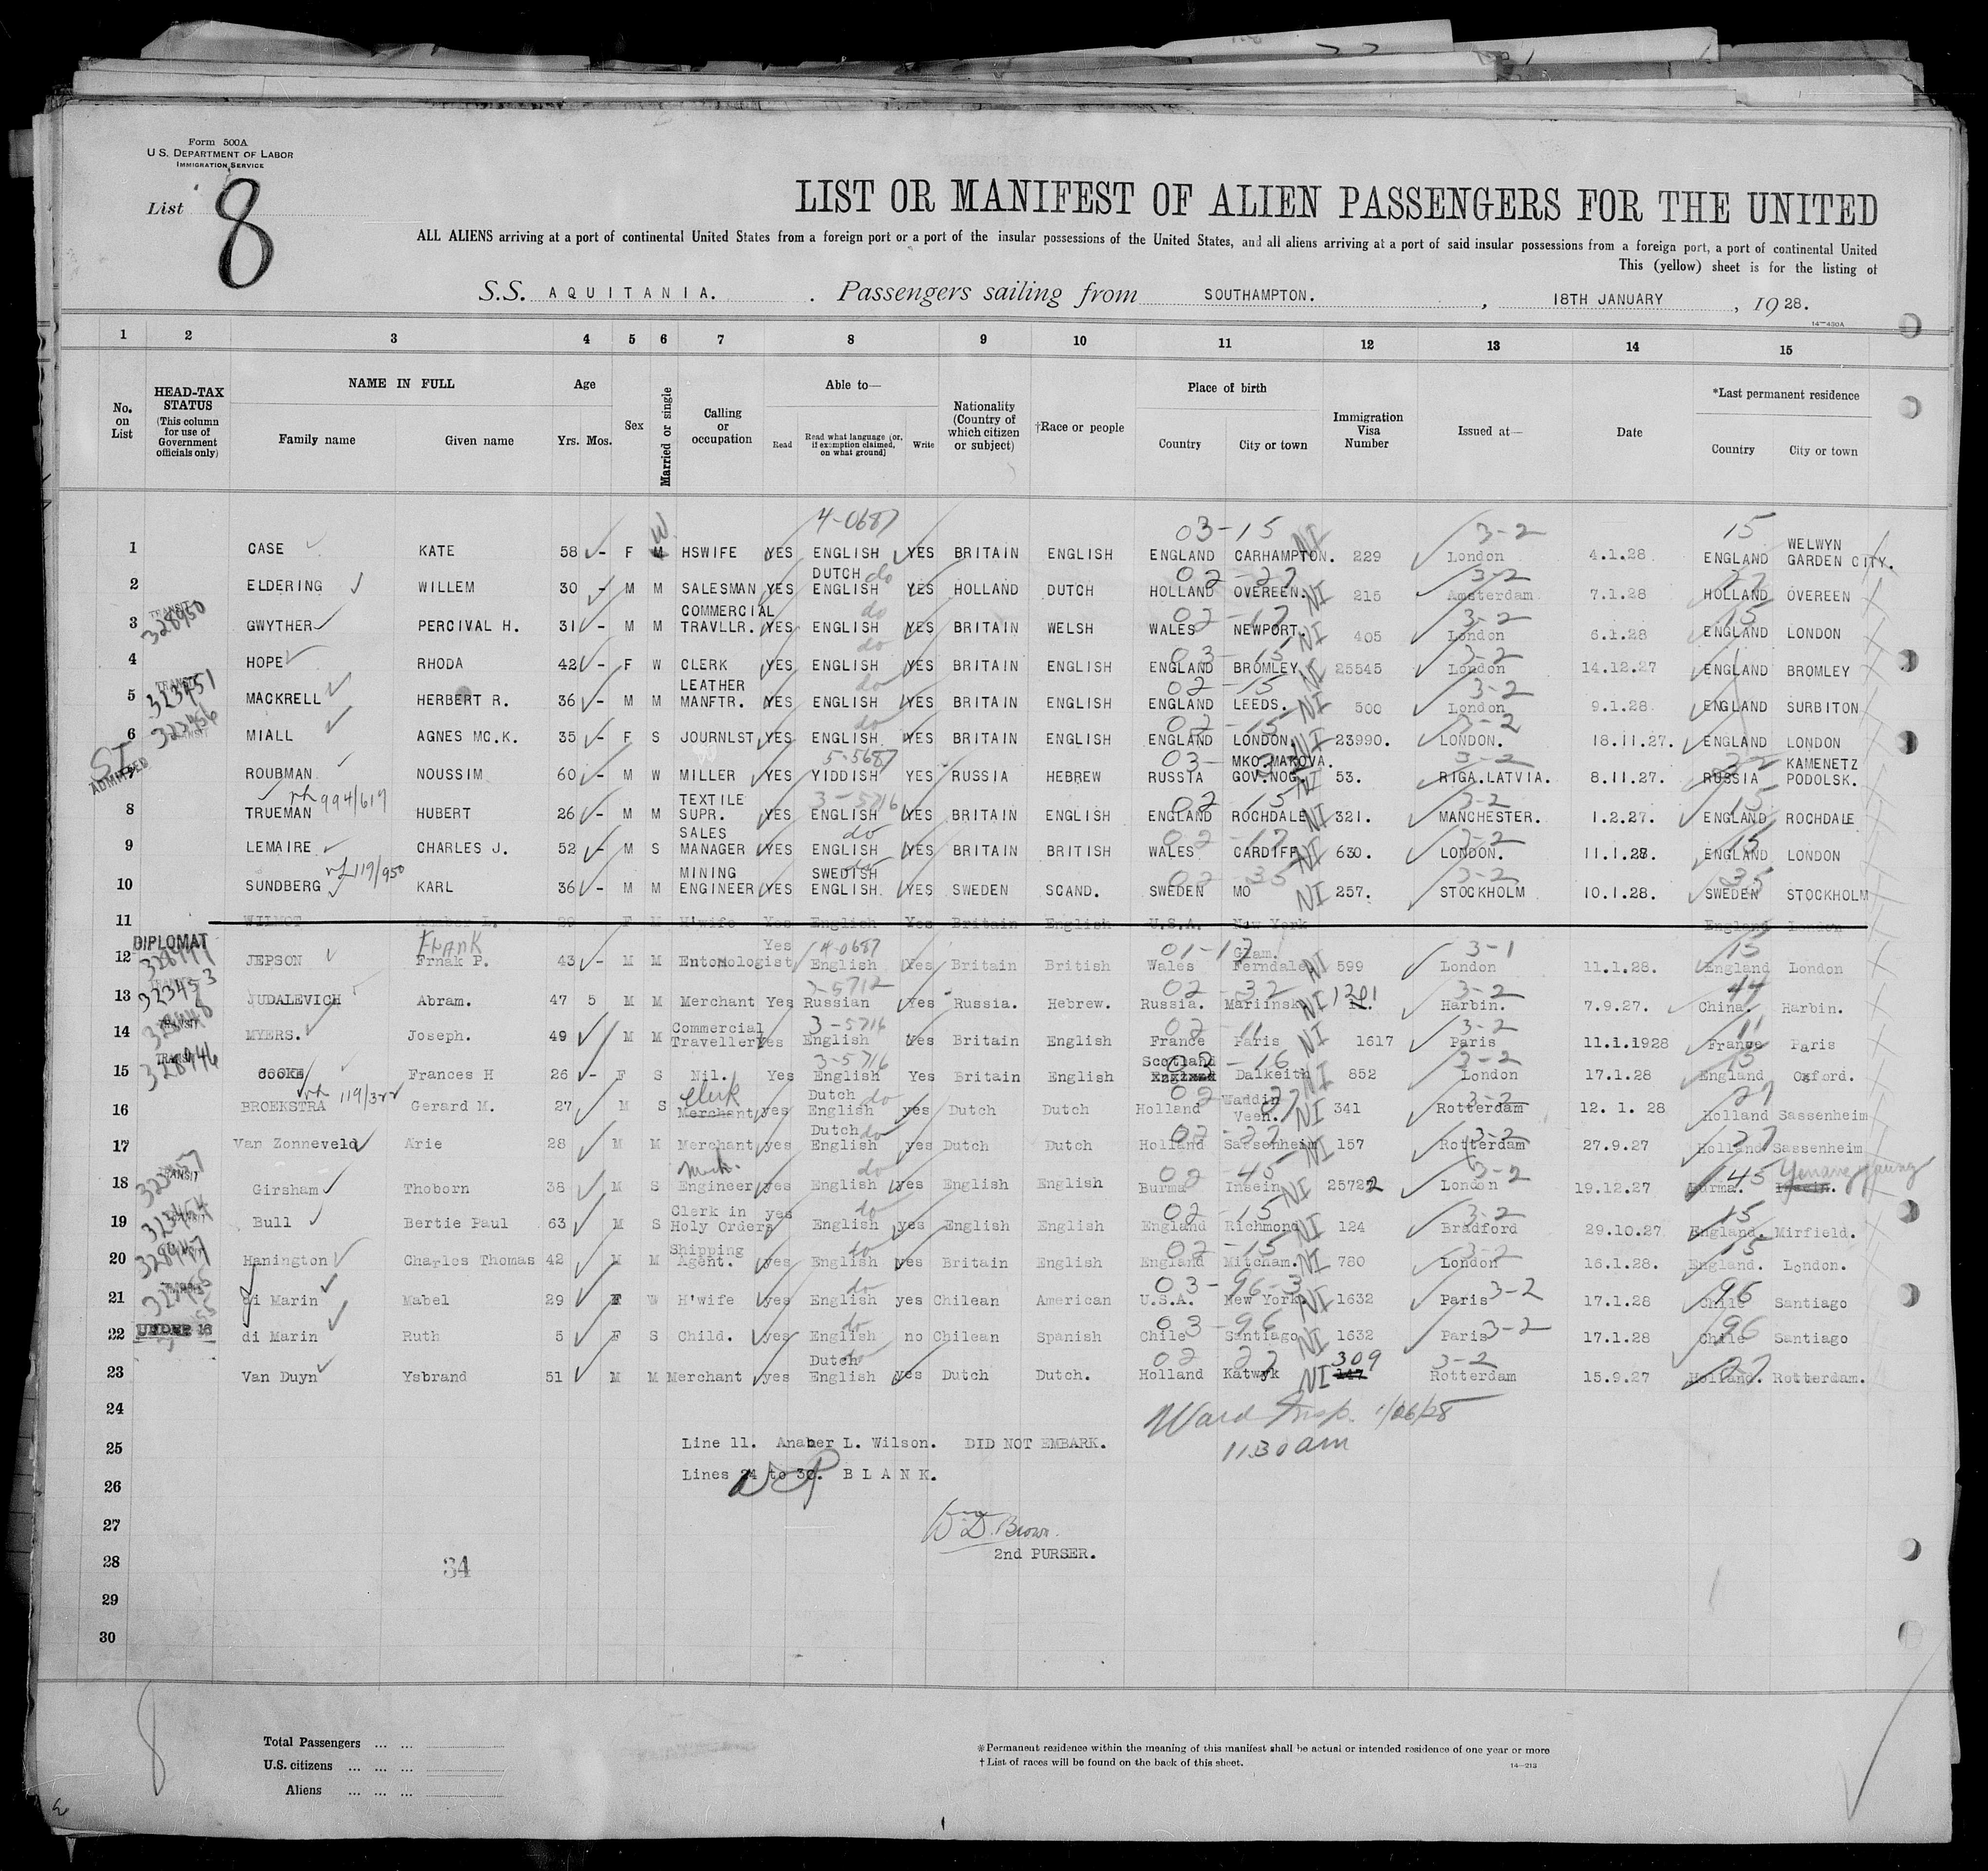 Form 500A
U.S. DEPARTMENT OF LABOR
IMMIGRATION SERVICE
List 8
LIST OR MANIFEST OF ALIEN PASSENGERS FOR THE UNITED
ALL ALIENS arriving at a port of continental United States from a foreign port or a port of the insular possessions of the United States, and all aliens arriving at a port of said insular possessions from a foreign port, a port of continental United
This (yellow) sheet is for the listing of
S.S. AQUITANIA. . Passengers sailing from SOUTHAMPTON. , 18TH JANUARY , 1928.
14—430A
1 2 3 4 5 6 7 8 9 10 11 12 13 14 15
No. on List
HEAD-TAX STATUS (This column for use of Government officials only)
NAME IN FULL Family name Given name
Age Yrs. Mos.
Sex
Married or single
Calling or occupation
Able to— Read Read what language (or, if exemption claimed, on what ground) Write
Nationality (Country of which citizen or subject)
†Race or people
Place of birth Country City or town
Immigration Visa Number
Issued at—
Date
*Last permanent residence Country City or town
4-0687 03-15 3-2 15
1 CASE KATE 58 - F W HSWIFE YES ENGLISH YES BRITAIN ENGLISH ENGLAND CARHAMPTON. NI 229 London 4.1.28 ENGLAND WELWYN GARDEN CITY.
2 ELDERING WILLEM 30 - M M SALESMAN YES DUTCH ENGLISH do YES HOLLAND DUTCH HOLLAND OVEREEN. 02-27 NI 215 Amsterdam 3-2 7.1.28 HOLLAND 27 OVEREEN
3 TRANSIT 328950 GWYTHER PERCIVAL H. 31 - M M COMMERCIAL TRAVLLR. YES ENGLISH do YES BRITAIN WELSH WALES NEWPORT. 02-17 NI 405 London 3-2 6.1.28 ENGLAND 15 LONDON
4 HOPE RHODA 42 - F W CLERK YES ENGLISH do YES BRITAIN ENGLISH ENGLAND BROMLEY 03-15 NI 25545 London 3-2 14.12.27 ENGLAND BROMLEY
5 TRANSIT 323451 MACKRELL HERBERT R. 36 - M M LEATHER MANFTR. YES ENGLISH do YES BRITAIN ENGLISH ENGLAND LEEDS. 02-15 NI 500 London 3-2 9.1.28 ENGLAND SURBITON
6 TRANSIT 323456 MIALL AGNES MC.K. 35 - F S JOURNLST YES ENGLISH do YES BRITAIN ENGLISH ENGLAND LONDON. 02-15 NI 23990. LONDON. 3-2 18.11.27. ENGLAND LONDON
ST ADMITTED ROUBMAN NOUSSIM 60 - M W MILLER YES YIDDISH 5-5687 YES RUSSIA HEBREW RUSSIA MKO.MAKOVA. GOV.NOG. NI 53. RIGA.LATVIA. 3-2 8.11.27. RUSSIA KAMENETZ PODOLSK.
8 TRUEMAN 994/619 HUBERT 26 - M M TEXTILE SUPR. YES ENGLISH 3-5716 YES BRITAIN ENGLISH ENGLAND ROCHDALE 02 15 NI 321. MANCHESTER. 3-2 1.2.27. ENGLAND 15 ROCHDALE
9 LEMAIRE CHARLES J. 52 - M S SALES MANAGER YES ENGLISH do YES BRITAIN BRITISH WALES CARDIFF 02-17 NI 630. LONDON. 3-2 11.1.28. ENGLAND 15 LONDON
10 SUNDBERG 119/950 KARL 36 - M M MINING ENGINEER YES SWEDISH ENGLISH. do YES SWEDEN SCAND. SWEDEN MO 02 35 NI 257. STOCKHOLM 3-2 10.1.28. SWEDEN 35 STOCKHOLM
11 WILMOT L. 29 F M H'wife Yes English Yes Britain English U.S.A. New York England London
12 DIPLOMAT JEPSON Frank Frnak P. 43 - M M Entomologist Yes English 4-0687 Yes Britain British Wales Glam. Ferndale 01-17 NI 599 London 3-1 11.1.28. England 15 London
13 323453 JUDALEVICH Abram. 47 5 M M Merchant Yes Russian 3-5712 Yes Russia. Hebrew. Russia. Mariinsk 02-32 NI 1201 Harbin. 3-2 7.9.27. China. 44 Harbin.
14 TRANSIT 328948 MYERS. Joseph. 49 M M Commercial Traveller Yes English 3-5716 Yes Britain English France Paris 02-11 NI 1617 Paris 3-2 11.1.1928 France 11 Paris
15 TRANSIT 328946 COOKE Frances H 26 - F S Nil. Yes English 3-5716 Yes Britain English Scotland England Dalkeith 02-16 NI 852 London 3-2 17.1.28 England 15 Oxford.
16 BROEKSTRA Gerard M. 27 M S Clerk Merchant yes Dutch English do yes Dutch Dutch Holland Waddin Veen. 02 27 NI 341 Rotterdam 3-2 12. 1. 28 Holland 27 Sassenheim
17 Van Zonneveld Arie 28 M M Merchant yes Dutch English do yes Dutch Dutch Holland Sassenheim 02-27 NI 157 Rotterdam 3-2 27.9.27 Holland 27 Sassenheim
18 TRANSIT 323457 Girsham Thoborn 38 M S Mech. Engineer yes English do yes English English Burma Insein 02-45 NI 25722 London 3-2 19.12.27 Burma. 45 Insein.
19 323454 Bull Bertie Paul 63 M S Clerk in Holy Orders yes English do yes English English England Richmond 02-15 NI 124 Bradford 3-2 29.10.27 England. 15 Mirfield.
20 328947 Hanington Charles Thomas 42 M M Shipping Agent. yes English do yes Britain English England Mitcham. 02-15 NI 780 London 3-2 16.1.28. England. 15 London.
21 di Marin Mabel 29 F W H'wife yes English do yes Chilean American U.S.A. New York 03-96-3 NI 1632 Paris 3-2 17.1.28 Chile 96 Santiago
22 UNDER 16 di Marin Ruth 5 F S Child. yes English do no Chilean Spanish Chile Santiago 03-96 NI 1632 Paris 3-2 17.1.28 Chile 96 Santiago
23 Van Duyn Ysbrand 51 M M Merchant yes Dutch English do yes Dutch Dutch. Holland Katwyk 02 27 NI 309 Rotterdam 3-2 15.9.27 Holland. 27 Rotterdam.
24 Ward Insp. 1/06/28
25 Line 11. Anaber L. Wilson. DID NOT EMBARK. 11.30 am
Lines 24 to 30. BLANK.
26
27 W.D. Brown.
28 34 2nd PURSER.
29
30
8
Total Passengers ... ...
U.S. citizens ... ... ...
Aliens ... ... ...
*Permanent residence within the meaning of this manifest shall be actual or intended residence of one year or more
† List of races will be found on the back of this sheet.
14—213